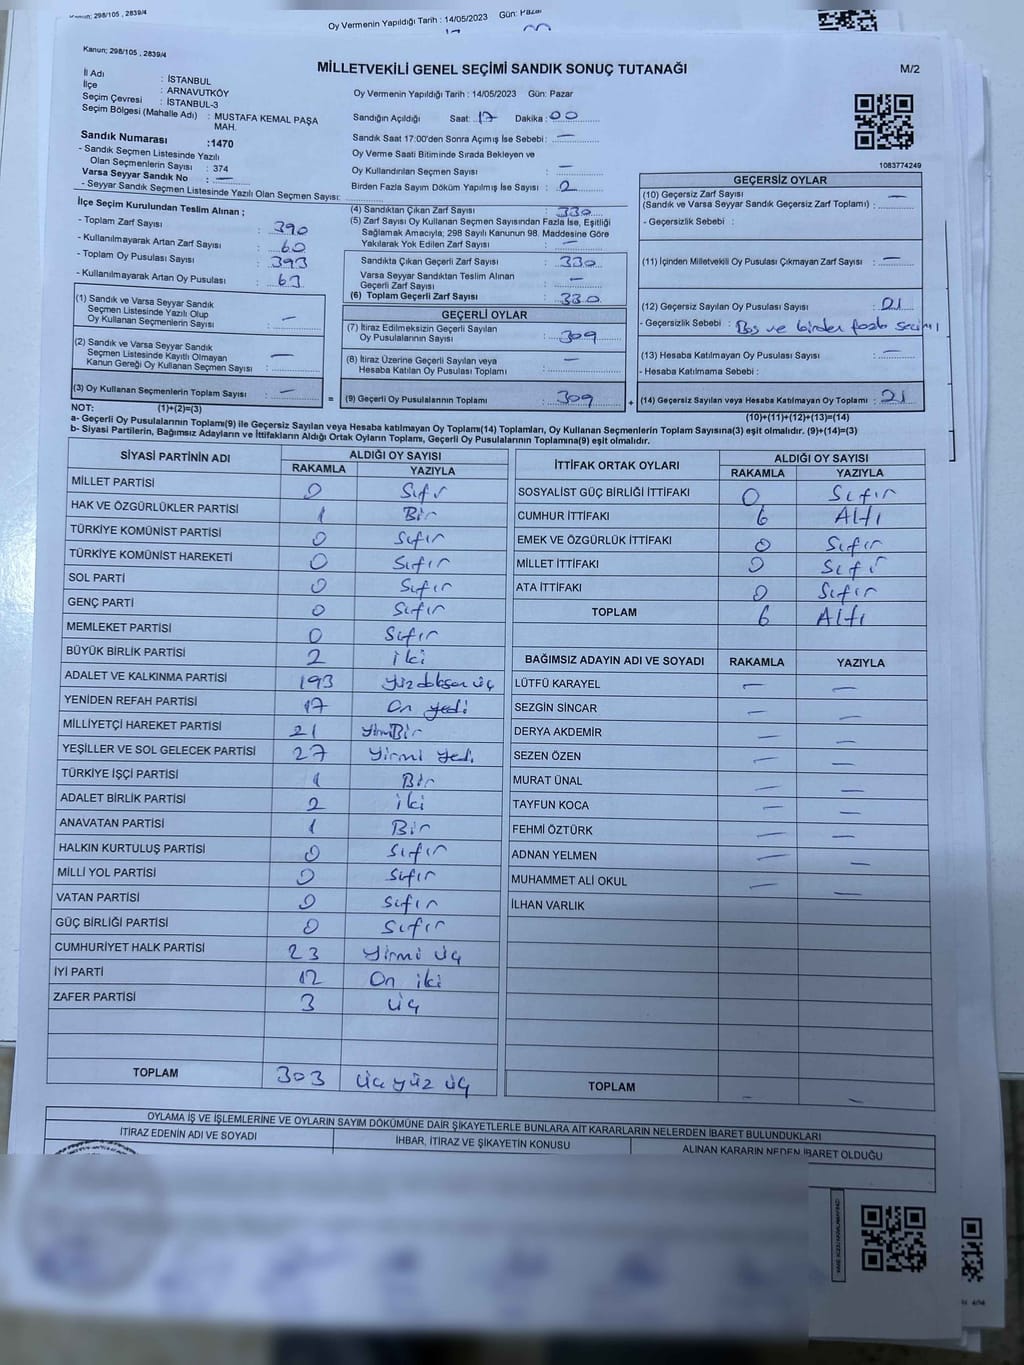 Kanun; 298/105 , 2839/4
Oy Vermenin Yapıldığı Tarih : 14/05/2023 Gün: Pazar
Kanun; 298/105 , 2839/4
MİLLETVEKİLİ GENEL SEÇİMİ SANDIK SONUÇ TUTANAĞI
M/2
İl Adı : İSTANBUL
İlçe : ARNAVUTKÖY
Seçim Çevresi : İSTANBUL-3
Seçim Bölgesi (Mahalle Adı) : MUSTAFA KEMAL PAŞA
MAH.
Sandık Numarası :1470
- Sandık Seçmen Listesinde Yazılı
Olan Seçmenlerin Sayısı : 374
Varsa Seyyar Sandık No : —
- Seyyar Sandık Seçmen Listesinde Yazılı Olan Seçmen Sayısı:
Oy Vermenin Yapıldığı Tarih : 14/05/2023 Gün: Pazar
Sandığın Açıldığı Saat: 17 Dakika: 00
Sandık Saat 17:00'den Sonra Açımış İse Sebebi : —
Oy Verme Saati Bitiminde Sırada Bekleyen ve
Oy Kullandırılan Seçmen Sayısı : —
Birden Fazla Sayım Döküm Yapılmış İse Sayısı : 2
1083774249
İlçe Seçim Kurulundan Teslim Alınan ;
- Toplam Zarf Sayısı : 390
- Kullanılmayarak Artan Zarf Sayısı : 60
- Toplam Oy Pusulası Sayısı : 393
- Kullanılmayarak Artan Oy Pusulası : 63
(1) Sandık ve Varsa Seyyar Sandık
Seçmen Listesinde Yazılı Olup
Oy Kullanan Seçmenlerin Sayısı : —
(2) Sandık ve Varsa Seyyar Sandık
Seçmen Listesinde Kayıtlı Olmayan
Kanun Gereği Oy Kullanan Seçmen Sayısı : —
(3) Oy Kullanan Seçmenlerin Toplam Sayısı : —
(4) Sandıktan Çıkan Zarf Sayısı : 330
(5) Zarf Sayısı Oy Kullanan Seçmen Sayısından Fazla İse, Eşitliği
Sağlamak Amacıyla; 298 Sayılı Kanunun 98. Maddesine Göre
Yakılarak Yok Edilen Zarf Sayısı : —
Sandıkta Çıkan Geçerli Zarf Sayısı : 330
Varsa Seyyar Sandıktan Teslim Alınan
Geçerli Zarf Sayısı : —
(6) Toplam Geçerli Zarf Sayısı : 330
GEÇERLİ OYLAR
(7) İtiraz Edilmeksizin Geçerli Sayılan
Oy Pusulalarının Sayısı : 309
(8) İtiraz Üzerine Geçerli Sayılan veya
Hesaba Katılan Oy Pusulası Toplamı : —
= (9) Geçerli Oy Pusulalarının Toplamı : 309
GEÇERSİZ OYLAR
(10) Geçersiz Zarf Sayısı
(Sandık ve Varsa Seyyar Sandık Geçersiz Zarf Toplamı) : —
- Geçersizlik Sebebi :
(11) İçinden Milletvekili Oy Pusulası Çıkmayan Zarf Sayısı : —
(12) Geçersiz Sayılan Oy Pusulası Sayısı : 21
- Geçersizlik Sebebi : Boş ve birden fazla seçimi
(13) Hesaba Katılmayan Oy Pusulası Sayısı : —
- Hesaba Katılmama Sebebi :
+ (14) Geçersiz Sayılan veya Hesaba Katılmayan Oy Toplamı : 21
NOT: (1)+(2)=(3)
(10)+(11)+(12)+(13)=(14)
a- Geçerli Oy Pusulalarının Toplamı(9) ile Geçersiz Sayılan veya Hesaba Katılmayan Oy Toplamı(14) Toplamları, Oy Kullanan Seçmenlerin Toplam Sayısına(3) eşit olmalıdır. (9)+(14)=(3)
b- Siyasi Partilerin, Bağımsız Adayların ve İttifakların Aldığı Ortak Oyların Toplamı, Geçerli Oy Pusulalarının Toplamına(9) eşit olmalıdır.
SİYASİ PARTİNİN ADI ALDIĞI OY SAYISI
RAKAMLA YAZIYLA
MİLLET PARTİSİ 0 Sıfır
HAK VE ÖZGÜRLÜKLER PARTİSİ 1 Bir
TÜRKİYE KOMÜNİST PARTİSİ 0 Sıfır
TÜRKİYE KOMÜNİST HAREKETİ 0 Sıfır
SOL PARTİ 0 Sıfır
GENÇ PARTİ 0 Sıfır
MEMLEKET PARTİSİ 0 Sıfır
BÜYÜK BİRLİK PARTİSİ 2 iki
ADALET VE KALKINMA PARTİSİ 193 yüzdoksan üç
YENİDEN REFAH PARTİSİ 17 On yedi
MİLLİYETÇİ HAREKET PARTİSİ 21 yirmiBir
YEŞİLLER VE SOL GELECEK PARTİSİ 27 Yirmi yedi
TÜRKİYE İŞÇİ PARTİSİ 1 Bir
ADALET BİRLİK PARTİSİ 2 iki
ANAVATAN PARTİSİ 1 Bir
HALKIN KURTULUŞ PARTİSİ 0 Sıfır
MİLLİ YOL PARTİSİ 0 Sıfır
VATAN PARTİSİ 0 Sıfır
GÜÇ BİRLİĞİ PARTİSİ 0 Sıfır
CUMHURİYET HALK PARTİSİ 23 Yirmi üç
İYİ PARTİ 12 On iki
ZAFER PARTİSİ 3 üç
TOPLAM 303 üçyüz üç
İTTİFAK ORTAK OYLARI ALDIĞI OY SAYISI
RAKAMLA YAZIYLA
SOSYALİST GÜÇ BİRLİĞİ İTTİFAKI 0 Sıfır
CUMHUR İTTİFAKI 6 Altı
EMEK VE ÖZGÜRLÜK İTTİFAKI 0 Sıfır
MİLLET İTTİFAKI 0 Sıfır
ATA İTTİFAKI 0 Sıfır
TOPLAM 6 Altı
BAĞIMSIZ ADAYIN ADI VE SOYADI RAKAMLA YAZIYLA
LÜTFÜ KARAYEL — —
SEZGİN SİNCAR — —
DERYA AKDEMİR — —
SEZEN ÖZEN — —
MURAT ÜNAL — —
TAYFUN KOCA — —
FEHMİ ÖZTÜRK — —
ADNAN YELMEN — —
MUHAMMET ALİ OKUL — —
İLHAN VARLIK
TOPLAM — —
OYLAMA İŞ VE İŞLEMLERİNE VE OYLARIN SAYIM DÖKÜMÜNE DAİR ŞİKAYETLERLE BUNLARA AİT KARARLARIN NELERDEN İBARET BULUNDUKLARI
İTİRAZ EDENİN ADI VE SOYADI İHBAR, İTİRAZ VE ŞİKAYETİN KONUSU ALINAN KARARIN NEDEN İBARET OLDUĞU